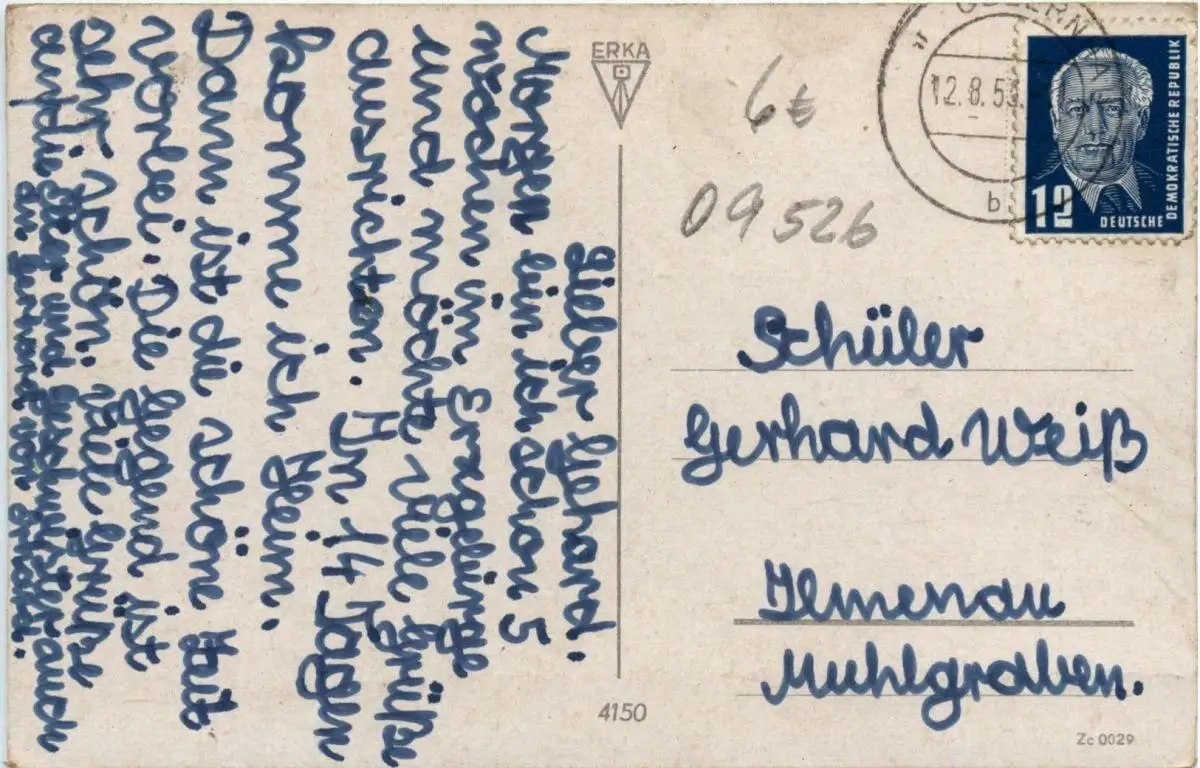 Lieber Gehard.
Morgen bin ich schon 5
wochen im Erzgebürge
und möchte viele Grüße
ausrichten. In 14 Tagen
komme ich Heim.
Dann ist die schöne Zeit
vorbei. Die Gegend ist
sehr schön. Viele Grüße
und Geschwister auch
an Gerhard von Erhard.
ERKA
4150
6€
09526
12.8.5
b
12
DEUTSCHE
DEMOKRATISCHE REPUBLIK
Schüler
Gerhard Weiß
Ilmenau
Muhlgraben.
Zc 0029